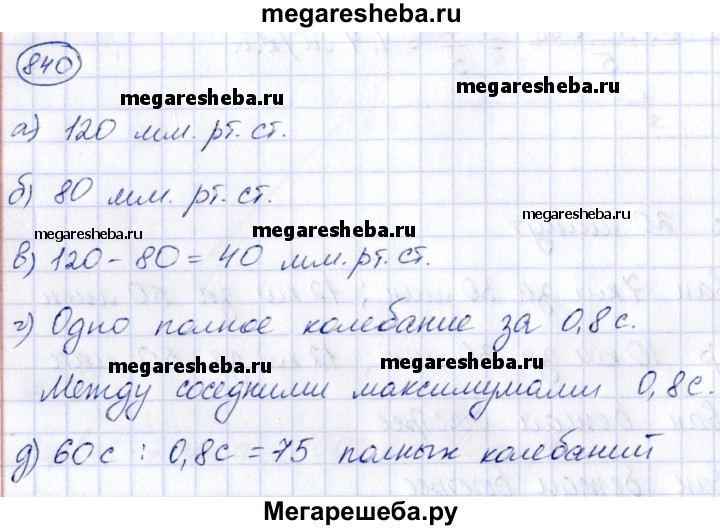 megaresheba.ru
840
megaresheba.ru
megaresheba.ru
а) 120 мм. рт. ст.
б) 80 мм. рт. ст.
megaresheba.ru
megaresheba.ru
в) 120 - 80 = 40 мм. рт. ст.
г) Одно полное колебание за 0,8 с.
megaresheba.ru
megaresheba.ru
Между соседними максимумами 0,8 с.
д) 60 с : 0,8 с = 75 полных колебаний
Мегарешеба.ру